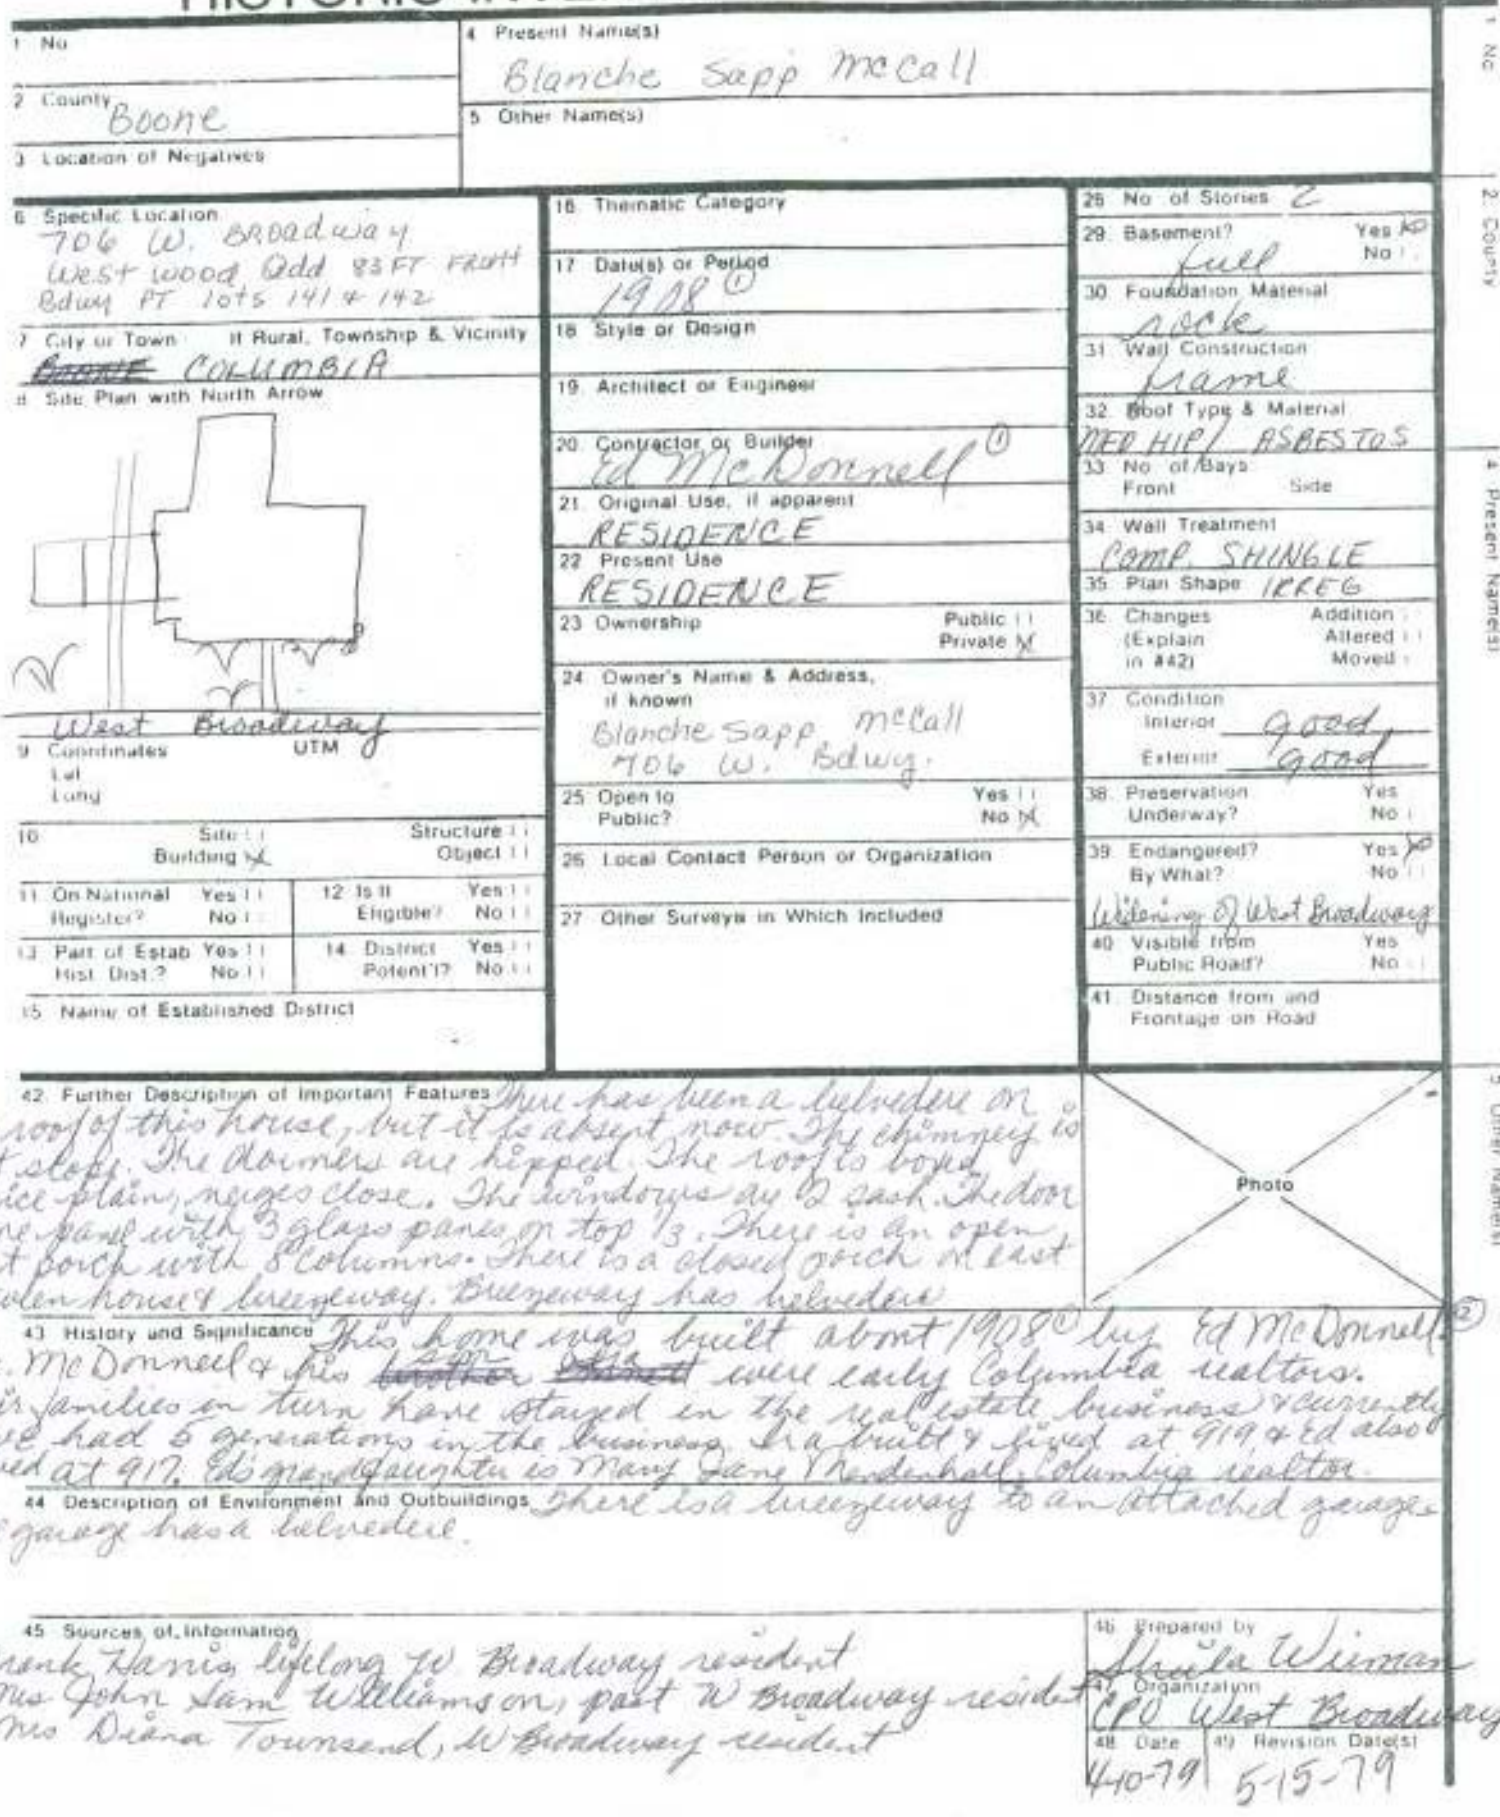 1 No
4 Present Name(s)
Blanche Sapp McCall
2 County
Boone
5 Other Name(s)
3 Location of Negatives
6 Specific Location
706 W. Broadway
West wood Add 83 FT Front
Bdwy PT lots 141 & 142
7 City or Town If Rural, Township & Vicinity
COLUMBIA
8 Site Plan with North Arrow
N
West Broadway
9 Coordinates UTM
Lat
Long
10 Site Structure
Building Object
11 On National Register? Yes No
12 Is It Eligible? Yes No
13 Part of Estab Hist. Dist.? Yes No
14 District Potent'l? Yes No
15 Name of Established District
16. Thematic Category
17 Date(s) or Period
1908 ①
18 Style or Design
19. Architect or Engineer
20. Contractor or Builder
Ed McDonnell ①
21 Original Use, if apparent
RESIDENCE
22 Present Use
RESIDENCE
23 Ownership Public
Private X
24 Owner's Name & Address,
if known
Blanche Sapp McCall
706 W. Bdwy.
25 Open to Yes
Public? No X
26 Local Contact Person or Organization
27 Other Surveys in Which Included
28 No. of Stories 2
29. Basement? Yes
full No
30 Foundation Material
rock
31 Wall Construction
frame
32 Roof Type & Material
MED HIP/ ASBESTOS
33 No. of Bays
Front Side
34 Wall Treatment
COMP. SHINGLE
35 Plan Shape IRREG
36 Changes Addition
(Explain Altered
in #42) Moved
37 Condition
Interior good
Exterior good
38. Preservation Yes
Underway? No
39. Endangered? Yes
By What? No
Widening of West Broadway
40 Visible from Yes
Public Road? No
41 Distance from and
Frontage on Road
42. Further Description of Important Features There has been a belvedere on
roof of this house, but it is absent now. The chimney is
slope. The dormers are hipped. The roof is boxed
ice plain, verges close. The windows are 2 sash. The door
ne panel with 3 glass panes on top 1/3. There is an open
t porch with 8 columns. There is a closed porch on east
house & breezeway. Breezeway has belvedere
Photo
43 History and Significance This home was built about 1908 ① by Ed McDonnell. ②
McDonnell & his were early Columbia realtors.
ir families in turn have stayed in the real estate business & currently
ve had 5 generations in the business. Ira built & lived at 919 & Ed also
ved at 917. Ed's granddaughter is Mary Jane Mendenhall, Columbia realtor.
44 Description of Environment and Outbuildings There is a breezeway to an attached garage.
garage has a belvedere.
45 Sources of Information
rank Harris, lifelong W Broadway resident
Mrs John Sam Williamson, past W Broadway resident
Mrs Diana Townsend, W Broadway resident
46 Prepared by
Sheila Wieman
47 Organization
CPO West Broadway
48 Date 49 Revision Date(s)
4-10-79 5-15-79
1 No
2 County
4 Present Name(s)
5 Other Name(s)